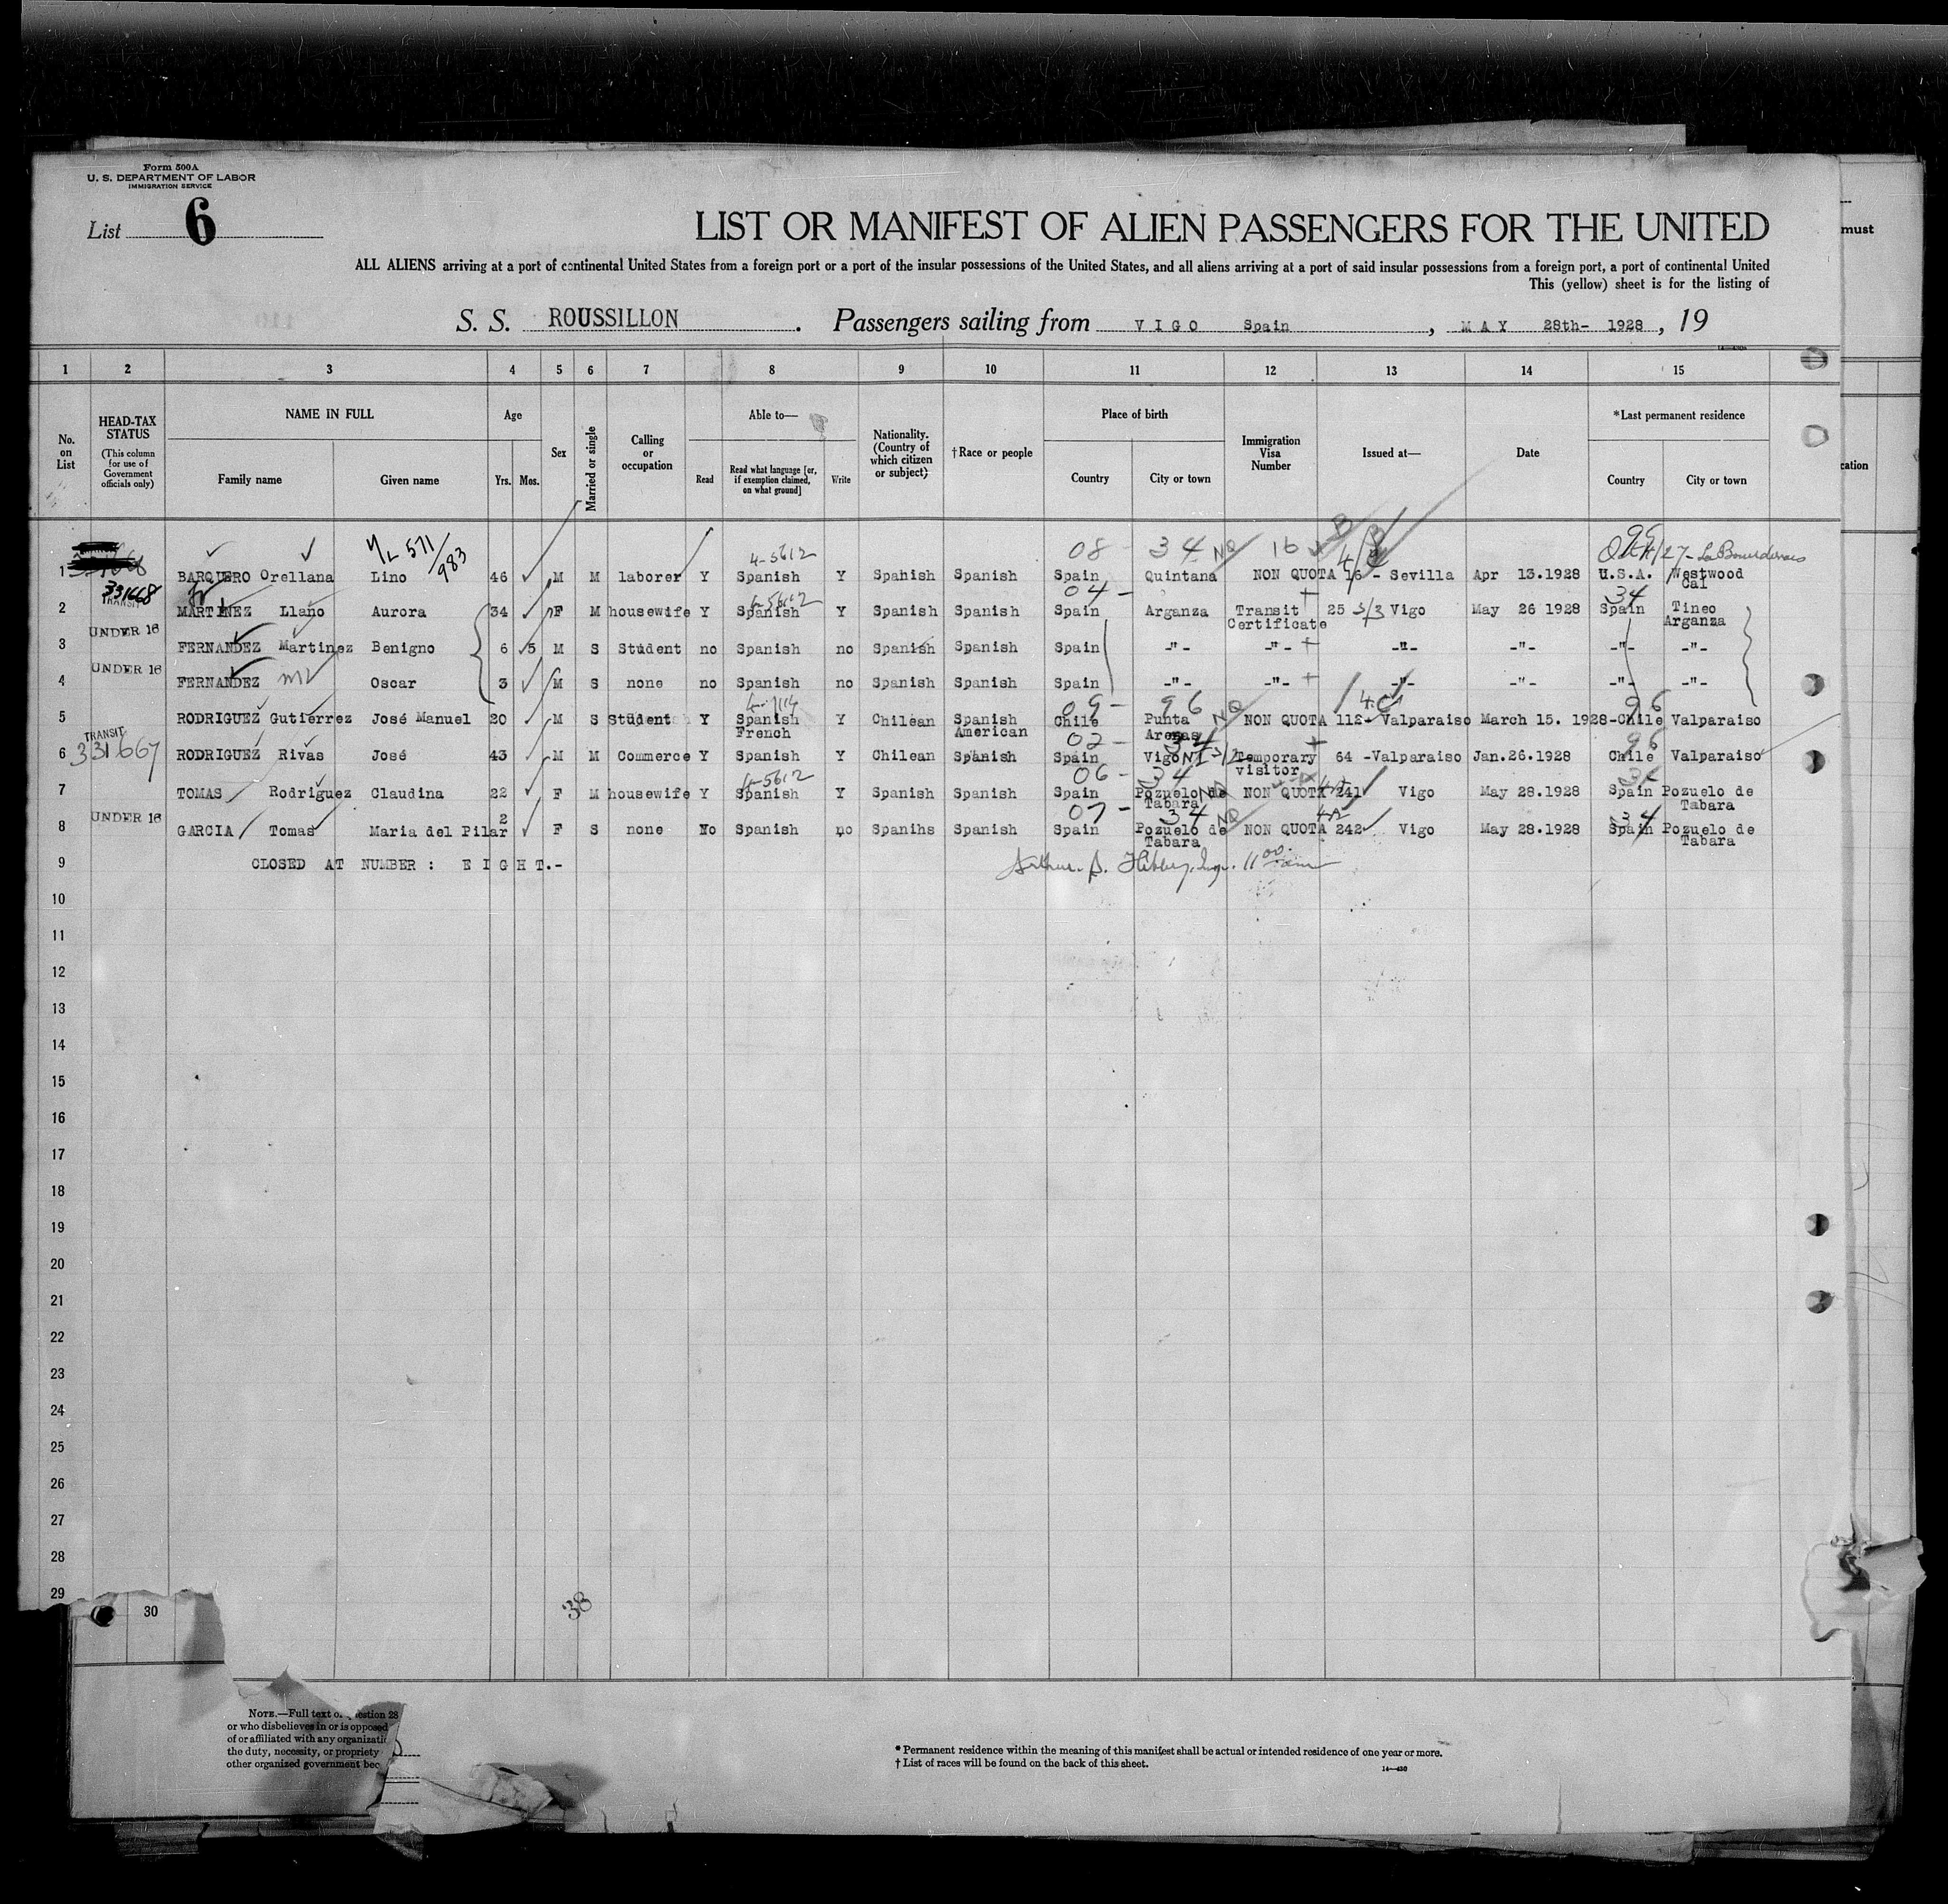 Form 500A
U. S. DEPARTMENT OF LABOR
IMMIGRATION SERVICE
List 6
LIST OR MANIFEST OF ALIEN PASSENGERS FOR THE UNITED
ALL ALIENS arriving at a port of continental United States from a foreign port or a port of the insular possessions of the United States, and all aliens arriving at a port of said insular possessions from a foreign port, a port of continental United
This (yellow) sheet is for the listing of
must
S. S. ROUSSILLON. Passengers sailing from VIGO Spain, MAY 28th- 1928, 19
1 2 3 4 5 6 7 8 9 10 11 12 13 14 15
No. on List
HEAD-TAX STATUS (This column for use of Government officials only)
NAME IN FULL Family name Given name
Age Yrs. Mos.
Sex
Married or single
Calling or occupation
Able to— Read Read what language [or, if exemption claimed, on what ground] Write
Nationality. (Country of which citizen or subject)
†Race or people
Place of birth Country City or town
Immigration Visa Number
Issued at—
Date
*Last permanent residence Country City or town
cation
571/983 4-5612 08- 34 NQ 16
1 BARQUERO Orellana Lino 46 M M laborer Y Spanish Y Spanish Spanish Spain Quintana NON QUOTA 16 - Sevilla Apr 13.1928 U.S.A. Westwood Cal
331668 TRANSIT 4-5612 04- 34
2 MARTINEZ Llano Aurora 34 F M housewife Y Spanish Y Spanish Spanish Spain Arganza Transit Certificate 25 3/3 Vigo May 26 1928 Spain Tineo Arganza
UNDER 16
3 FERNANDEZ Martinez Benigno 6 5 M S Student no Spanish no Spanish Spanish Spain -"- -"- -"- -"- -"- -"-
UNDER 16
4 FERNANDEZ Oscar 3 M S none no Spanish no Spanish Spanish Spain -"- -"- -"- -"- -"- -"-
09- 96 NQ 96
5 RODRIGUEZ Gutierrez José Manuel 20 M S Student Y Spanish French Y Chilean Spanish American Chile Punta Arenas NON QUOTA 112- Valparaiso March 15. 1928-Chile Valparaiso
TRANSIT 331667 02- 34 96
6 RODRIGUEZ Rivas José 43 M M Commerce Y Spanish Y Chilean Spanish Spain Vigo Temporary visitor 64 -Valparaiso Jan.26.1928 Chile Valparaiso
4-5612 06- 34
7 TOMAS Rodriguez Claudina 22 F M housewife Y Spanish Y Spanish Spanish Spain Pozuelo de Tabara NON QUOTA 241 Vigo May 28.1928 Spain Pozuelo de Tabara
UNDER 16 07- 34 NQ 34
8 GARCIA Tomas Maria del Pilar 2 F S none No Spanish no Spanihs Spanish Spain Pozuelo de Tabara NON QUOTA 242 Vigo May 28.1928 Spain Pozuelo de Tabara
9 CLOSED AT NUMBER : EIGHT.-
10
11
12
13
14
15
16
17
18
19
20
21
22
23
24
25
26
27
28
29
30
38
NOTE.—Full text o
estion 28
or who disbelieves in or is opposed
of or affiliated with any organizati
the duty, necessity, or propriety
other organized government bec
* Permanent residence within the meaning of this manifest shall be actual or intended residence of one year or more.
† List of races will be found on the back of this sheet.
14—430